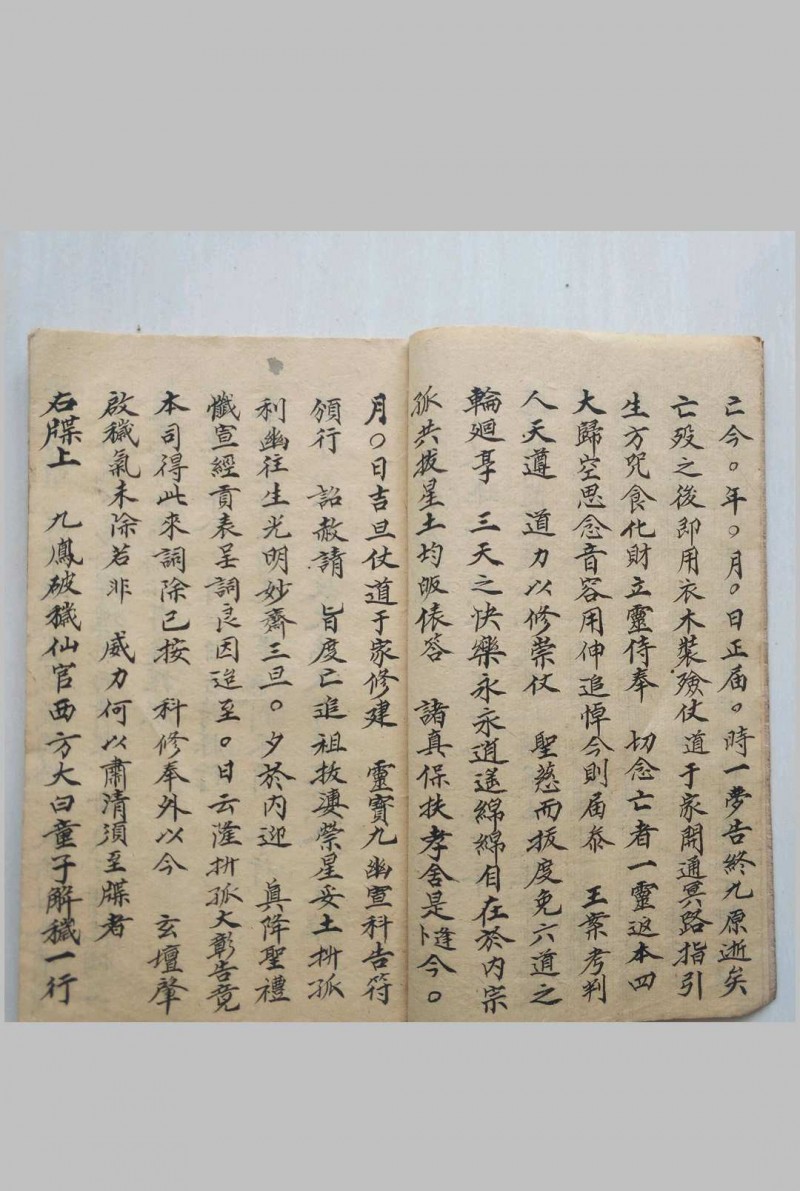 亡今〇年〇月〇日正届〇時一夢告終九原逝矣
亡歿之後即用衣木裝殮仗道于家開通冥路指引
生方咒食化財立靈侍奉 切念亡者一靈返本四
大歸空思念音容用伸追悼今則届叅 王案考判
人天遵 道力以修崇仗 聖慈而拔度免六道之
輪廻享 三天之快樂永永逍遥綿綿自在於內宗
孤共拔星土均皈俵答 諸真保扶孝舍是卜逢今〇
月〇日吉旦仗道于家修建 靈寶九幽宣科告符
頒行 詔赦請 旨度亡追祖拔 禜星妥土拼孤
利幽往生光明妙齋三旦〇夕於內迎 真降聖禮
懺宣經貢表呈詞良因迨至〇日云 拼孤大彰告竟
本司得此來詞除已按 科修奉外以今 玄壇肇
啟穢氣未除若非 威力何以肅清須至牒者
右牒上 九鳳破穢仙官西方大白童子解穢一行